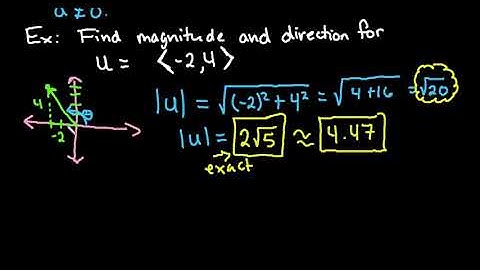 u ≠ 0.
Ex: Find magnitude and direction for
u = ⟨-2,4⟩
|u| = √((-2)² + 4²) = √(4+16) = √20
4
θ
-2
|u| = 2√5 ≈ 4.47
exact